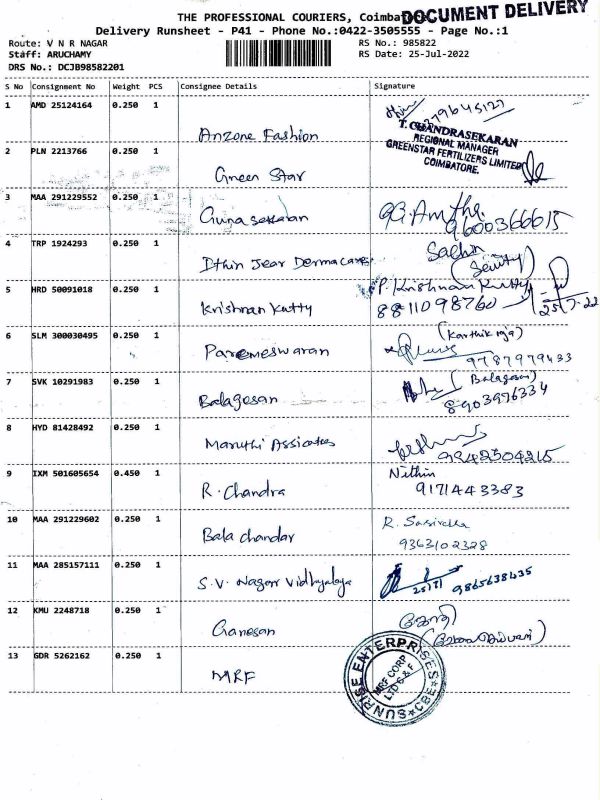 THE PROFESSIONAL COURIERS, Coimbatore
DOCUMENT DELIVERY
Delivery Runsheet - P41 - Phone No.:0422-3505555 - Page No.:1
Route: V N R NAGAR
RS No.: 985822
Staff: ARUCHAMY
RS Date: 25-Jul-2022
DRS No.: DCJB98582201
S No Consignment No Weight PCS Consignee Details Signature
1 AMD 25124164 0.250 1
Anzone Fashion
T. CHANDRASEKARAN
REGIONAL MANAGER
GREENSTAR FERTILIZERS LIMITED
COIMBATORE.
2 PLN 2213766 0.250 1
Green Star
3 MAA 291229552 0.250 1
Gunasekaran
9600366615
4 TRP 1924293 0.250 1
Sachin
(Seuity)
5 HRD 50091018 0.250 1
Krishnan Kutty
P. Krishnan Kutty
8811098760
25/7/22
6 SLM 300030495 0.250 1
Parameswaran
(Karthik raja)
9787979433
7 SVK 10291983 0.250 1
Balagosan
(Balagosan)
8903976334
8 HYD 81428492 0.250 1
Maruthi Assicates
9842504215
9 IXM 501605654 0.450 1
R. Chandra
Nithin
9171443383
10 MAA 291229602 0.250 1
Bala chandar
R. Sasirekha
9363102328
11 MAA 285157111 0.250 1
S.V. Nagar Vidhyalaya
9865638435
12 KMU 2248718 0.250 1
Ganesan
13 GDR 5262162 0.250 1
MRF
SUNRISE ENTERPRISES
MRF CORP
LTD C & F
CBE